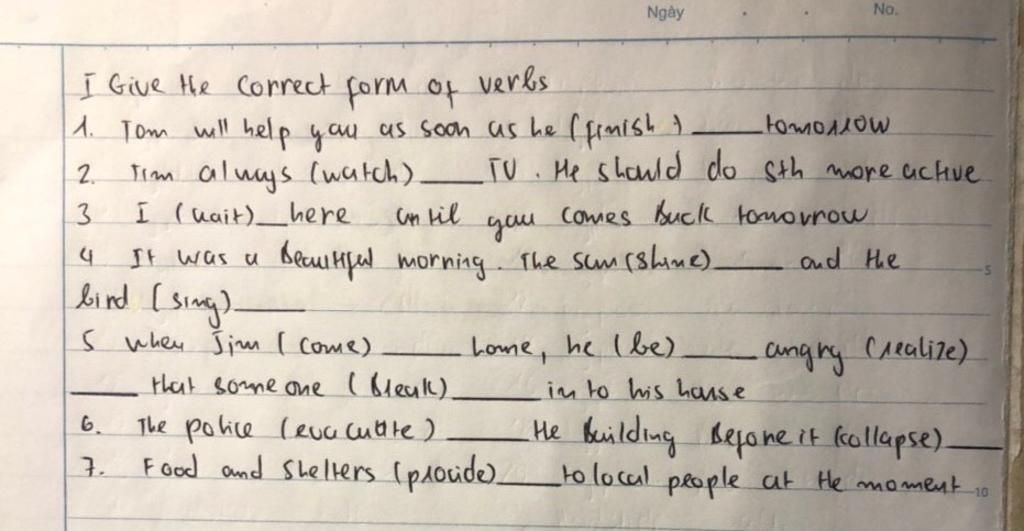 Ngày . . No.
I Give the correct form of verbs
1. Tom will help you as soon as he (finish) ____ tomorrow
2. Tim always (watch) ____ TV. He should do sth more active
3 I (wait) __ here until you comes back tomorrow
4 It was a beautiful morning. The sun (shine) ____ and the
5
bird (sing) ____
5 when Jim (come) ____ home, he (be) ____ angry (realize)
____ that someone (break) ____ in to his house
6. The police (evacuate) ____ the building before it (collapse) ____
7. Food and shelters (provide) ____ to local people at the moment
10